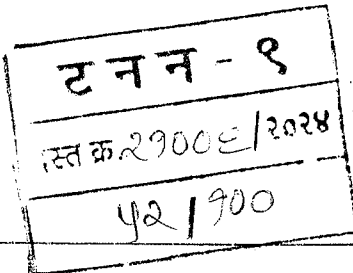 ट न न - ९
दस्त क्र २१००६/२०२४
५२/१००